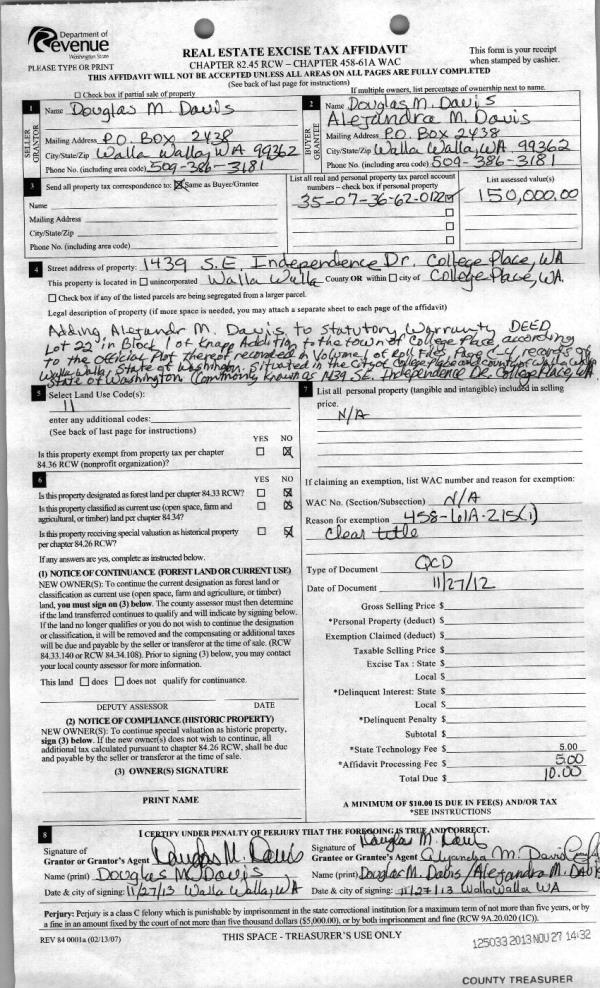 Department of
Revenue
Washington State
PLEASE TYPE OR PRINT
REAL ESTATE EXCISE TAX AFFIDAVIT
CHAPTER 82.45 RCW – CHAPTER 458-61A WAC
This form is your receipt
when stamped by cashier.
THIS AFFIDAVIT WILL NOT BE ACCEPTED UNLESS ALL AREAS ON ALL PAGES ARE FULLY COMPLETED
(See back of last page for instructions)
Check box if partial sale of property
If multiple owners, list percentage of ownership next to name.
1
SELLER
GRANTOR
Name Douglas M. Davis
Mailing Address P.O. Box 2438
City/State/Zip Walla Walla, WA 99362
Phone No. (including area code) 509-386-3181
2
BUYER
GRANTEE
Name Douglas M. Davis
Alexandra M. Davis
Mailing Address P.O. Box 2438
City/State/Zip Walla Walla, WA 99362
Phone No. (including area code) 509-386-3181
3
Send all property tax correspondence to: Same as Buyer/Grantee
Name
Mailing Address
City/State/Zip
Phone No. (including area code)
List all real and personal property tax parcel account
numbers – check box if personal property
35-07-36-62-0122
List assessed value(s)
150,000.00
4
Street address of property: 1439 S.E. Independence Dr. College Place, WA
This property is located in unincorporated Walla Walla County OR within city of College Place, WA.
Check box if any of the listed parcels are being segregated from a larger parcel.
Legal description of property (if more space is needed, you may attach a separate sheet to each page of the affidavit)
Adding Alejandr M. Davis to Statutory Warranty DEED
Lot 22 in Block 1 of Knapp Addition to the town of College Place, according
to the Official Plot thereof recorded in Volume 1 of Roll Files Page C-4, records of
Walla Walla, State of Washington. Situated in the City of College Place and county of Walla Walla
State of Washington. (Commonly known as 1439 SE. Independence Dr. College Place, WA.
5
Select Land Use Code(s):
11
enter any additional codes:
(See back of last page for instructions)
YES NO
Is this property exempt from property tax per chapter
84.36 RCW (nonprofit organization)?
6
YES NO
Is this property designated as forest land per chapter 84.33 RCW?
Is this property classified as current use (open space, farm and
agricultural, or timber) land per chapter 84.34?
Is this property receiving special valuation as historical property
per chapter 84.26 RCW?
If any answers are yes, complete as instructed below.
(1) NOTICE OF CONTINUANCE (FOREST LAND OR CURRENT USE)
NEW OWNER(S): To continue the current designation as forest land or
classification as current use (open space, farm and agriculture, or timber)
land, you must sign on (3) below. The county assessor must then determine
if the land transferred continues to qualify and will indicate by signing below.
If the land no longer qualifies or you do not wish to continue the designation
or classification, it will be removed and the compensating or additional taxes
will be due and payable by the seller or transferor at the time of sale. (RCW
84.33.140 or RCW 84.34.108). Prior to signing (3) below, you may contact
your local county assessor for more information.
This land does does not qualify for continuance.
DEPUTY ASSESSOR DATE
(2) NOTICE OF COMPLIANCE (HISTORIC PROPERTY)
NEW OWNER(S): To continue special valuation as historic property,
sign (3) below. If the new owner(s) does not wish to continue, all
additional tax calculated pursuant to chapter 84.26 RCW, shall be due
and payable by the seller or transferor at the time of sale.
(3) OWNER(S) SIGNATURE
PRINT NAME
7
List all personal property (tangible and intangible) included in selling
price.
N/A
If claiming an exemption, list WAC number and reason for exemption:
WAC No. (Section/Subsection) N/A
Reason for exemption 458-61A-215(1)
Clear title
Type of Document QCD
Date of Document 11/27/12
Gross Selling Price $
*Personal Property (deduct) $
Exemption Claimed (deduct) $
Taxable Selling Price $
Excise Tax : State $
Local $
*Delinquent Interest: State $
Local $
*Delinquent Penalty $
Subtotal $
*State Technology Fee $ 5.00
*Affidavit Processing Fee $ 5.00
Total Due $ 10.00
A MINIMUM OF $10.00 IS DUE IN FEE(S) AND/OR TAX
*SEE INSTRUCTIONS
8
I CERTIFY UNDER PENALTY OF PERJURY THAT THE FOREGOING IS TRUE AND CORRECT.
Signature of
Grantor or Grantor's Agent Douglas M. Davis
Name (print) Douglas M. Davis
Date & city of signing: 11/27/13 Walla Walla, WA
Douglas M. Davis
Signature of
Grantee or Grantee's Agent Alejandra M. David
Name (print) Douglas M. Dabis/Alejandra M. Dabis
Date & city of signing: 11/27/13 Walla Walla WA
Perjury: Perjury is a class C felony which is punishable by imprisonment in the state correctional institution for a maximum term of not more than five years, or by
a fine in an amount fixed by the court of not more than five thousand dollars ($5,000.00), or by both imprisonment and fine (RCW 9A.20.020 (1C)).
REV 84 0001a (02/13/07)
THIS SPACE - TREASURER'S USE ONLY
125033 2013 NOV 27 14:32
COUNTY TREASURER